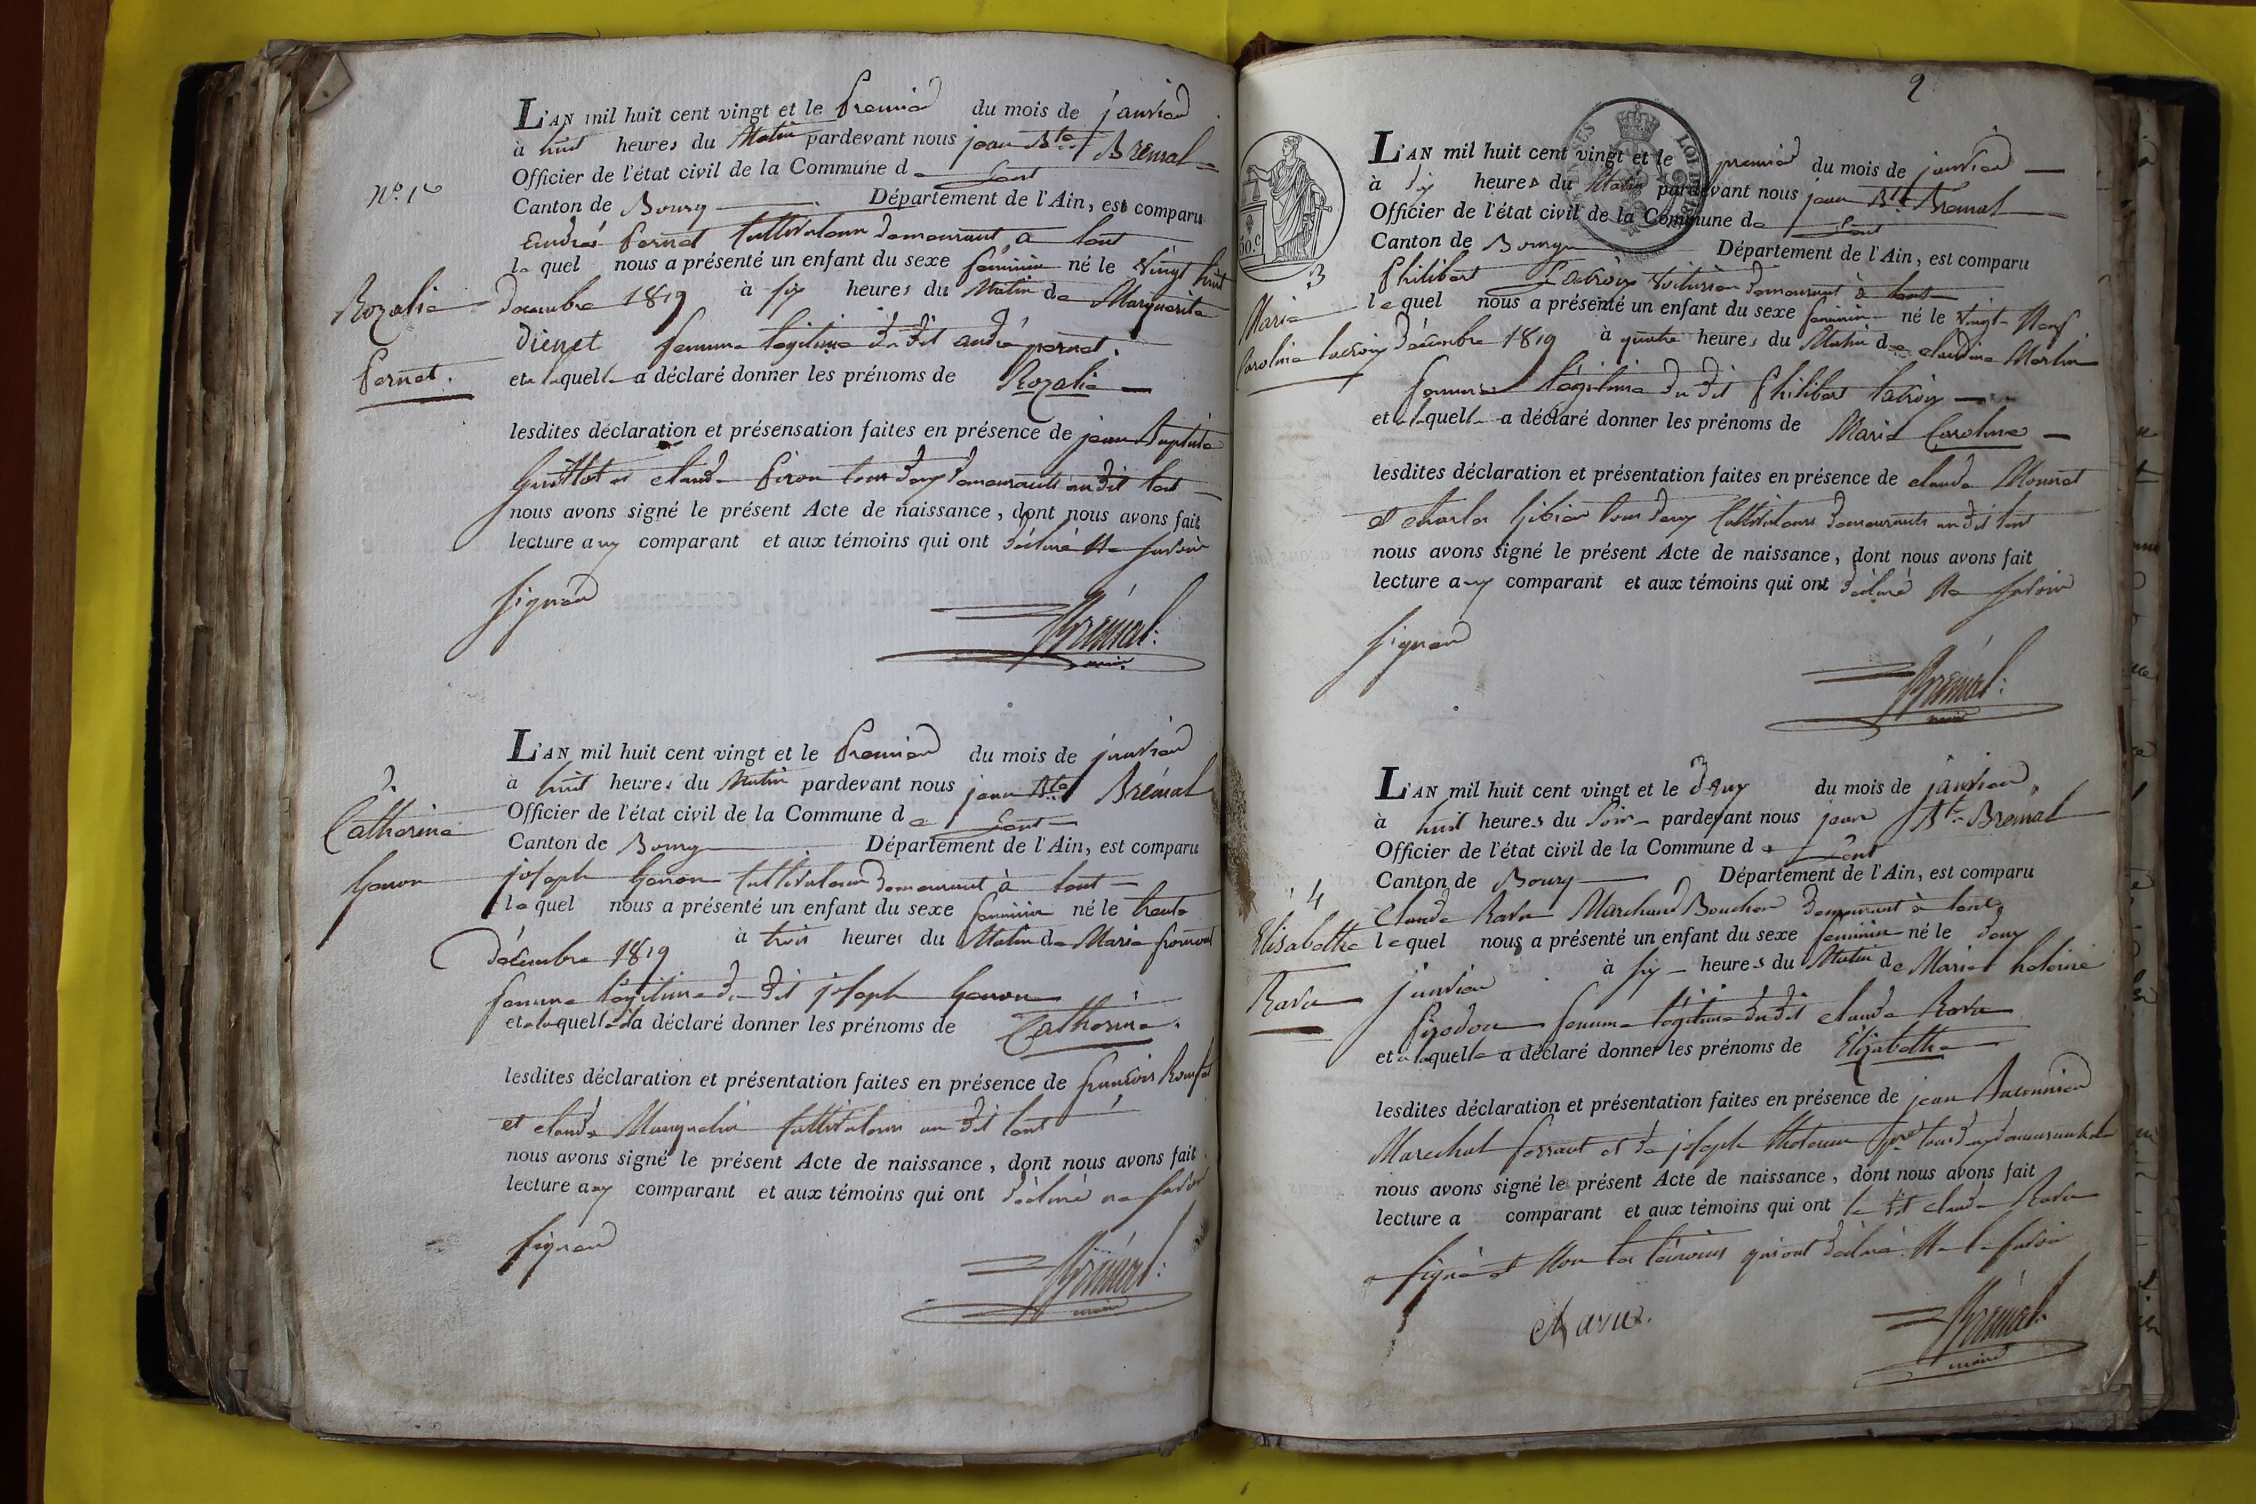 L'AN mil huit cent vingt et le premier du mois de janvier
à huit heures du Matin pardevant nous jean Bte Brémal
Officier de l'état civil de la Commune de
Nº 1er
Canton de Bourg Département de l'Ain, est comparu
André Pernet Cultivateur demeurant à
lequel nous a présenté un enfant du sexe féminin né le vingt huit
Rozalie
décembre 1819 à six heures du Matin de Marguerite
femme légitime du dit andré pernet.
Pernet.
et laquelle a déclaré donner les prénoms de Rozalie
lesdites déclaration et présensation faites en présence de jean Baptiste
et claude tous deux demeurants au dit
nous avons signé le présent Acte de naissance, dont nous avons fait
lecture aux comparant et aux témoins qui ont déclaré Ne savoir
signer
Brémal.
maire
L'AN mil huit cent vingt et le premier du mois de janvier
à huit heures du Matin pardevant nous jean Bte Brémal
2.
Officier de l'état civil de la Commune de
Catherine
Canton de Bourg Département de l'Ain, est comparu
Gonon
joseph Gonon Cultivateur demeurant à
lequel nous a présenté un enfant du sexe féminin né le trente
décembre 1819 à trois heures du Matin de Marie
femme légitime du dit joseph Gonon
et laquelle a déclaré donner les prénoms de Catherine.
lesdites déclaration et présentation faites en présence de françois
et claude Cultivateurs au dit
nous avons signé le présent Acte de naissance, dont nous avons fait
lecture aux comparant et aux témoins qui ont déclaré ne savoir
signer
Brémal.
maire
2
L'AN mil huit cent vingt et le premier du mois de janvier
à dix heures du Matin pardevant nous jean Bte Bremal
Officier de l'état civil de la Commune de
50.c
Canton de Bourg Département de l'Ain, est comparu
3
Philibert Lacroix voiturier demeurant à
lequel nous a présenté un enfant du sexe féminin né le vingt Neuf
Marie
Caroline Lacroix
décembre 1819 à quatre heures du Matin de claudine Martin
femme légitime du dit Philibert lacroix
et laquelle a déclaré donner les prénoms de Marie Caroline
lesdites déclaration et présentation faites en présence de claude Monnet
et charles tous deux Cultivateurs demeurants au dit
nous avons signé le présent Acte de naissance, dont nous avons fait
lecture aux comparant et aux témoins qui ont déclaré Ne savoir
signer
Brémal.
maire
L'AN mil huit cent vingt et le deux du mois de janvier
à huit heures du soir pardevant nous jean Bte Bremal
Officier de l'état civil de la Commune de
Canton de Bourg Département de l'Ain, est comparu
4
Claude Ravu Marchand Boucher demeurant à
Elisabethe
lequel nous a présenté un enfant du sexe féminin né le deux
janvier à six heures du Matin de Marie
Ravu
femme légitime du dit claude Ravu
et laquelle a déclaré donner les prénoms de Elizabethe
lesdites déclaration et présentation faites en présence de jean
Marechal ferrant et de joseph tous deux demeurants
nous avons signé le présent Acte de naissance, dont nous avons fait
lecture a comparant et aux témoins qui ont le dit claude Ravu
signé et Non les témoins qui ont déclaré Ne le savoir
Brémal.
maire